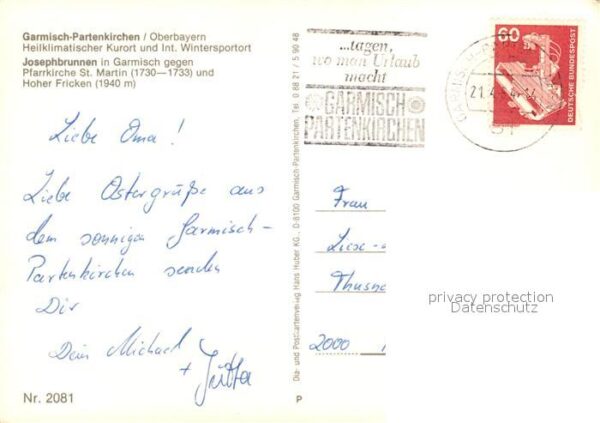 Garmisch-Partenkirchen / Oberbayern
Heilklimatischer Kurort und Int. Wintersportort
Josephbrunnen in Garmisch gegen
Pfarrkirche St. Martin (1730—1733) und
Hoher Fricken (1940 m)
Liebe Oma!
Liebe Ostergrüße aus
dem sonnigen Garmisch-
Partenkirchen senden
Dir
Dein Michael
+ Jutta
Nr. 2081
Dia- und Postkartenverlag Hans Huber KG., D-8100 Garmisch-Partenkirchen, Tel. 0 88 21 / 5 90 48
P
...tagen,
wo man Urlaub
macht
GARMISCH
PARTENKIRCHEN
60
DEUTSCHE BUNDESPOST
Frau
Thusne
2000
privacy protection
Datenschutz